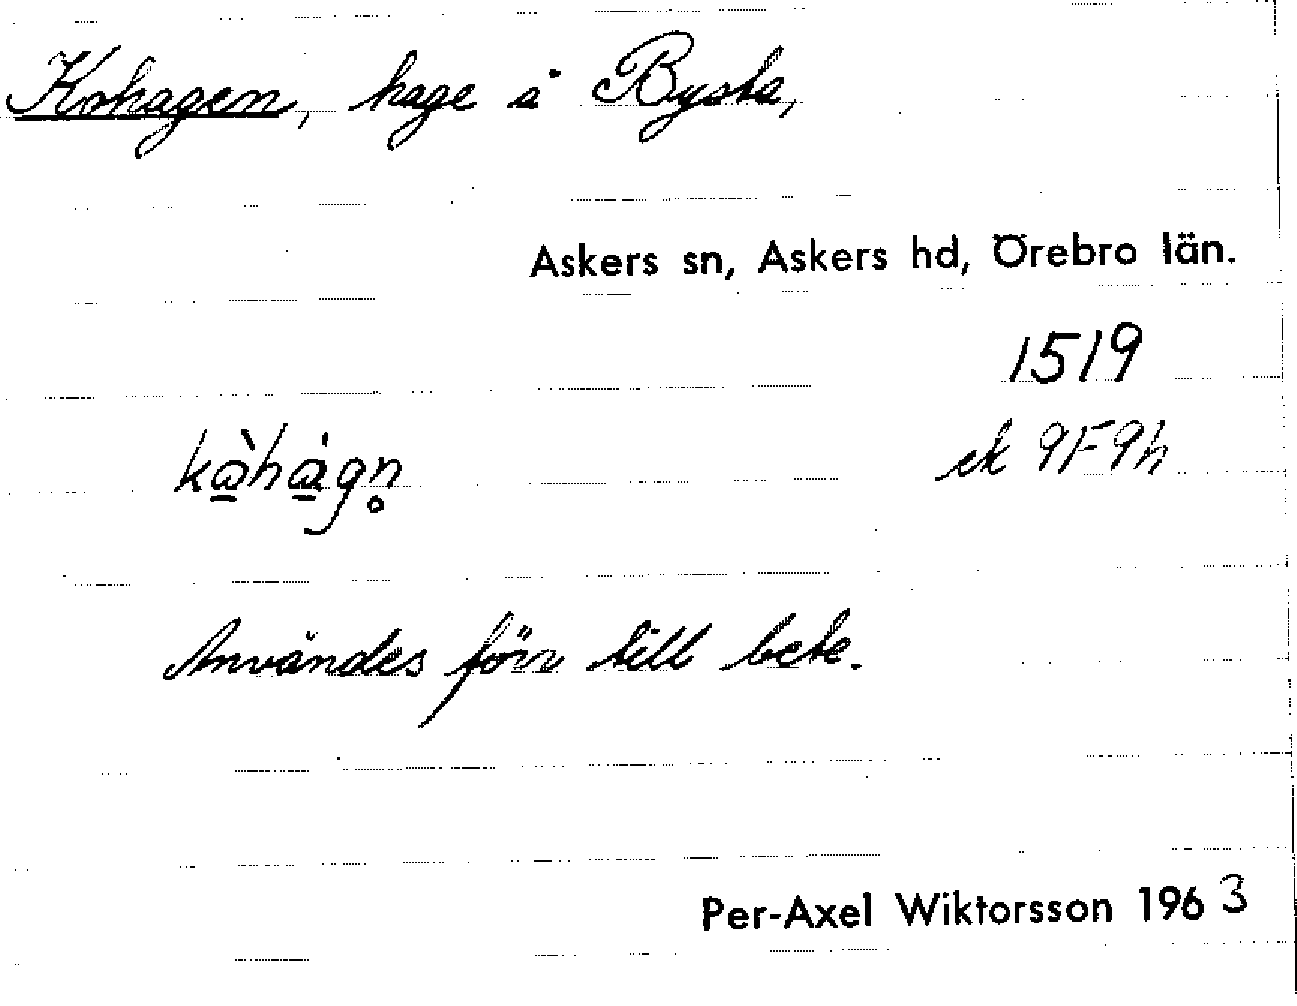 Kohagen, hage å Bysta,
Askers sn, Askers hd, Örebro län.
1519
ek 9F9h
kàhágn̥
Användes förr till bete.
Per-Axel Wiktorsson 1963